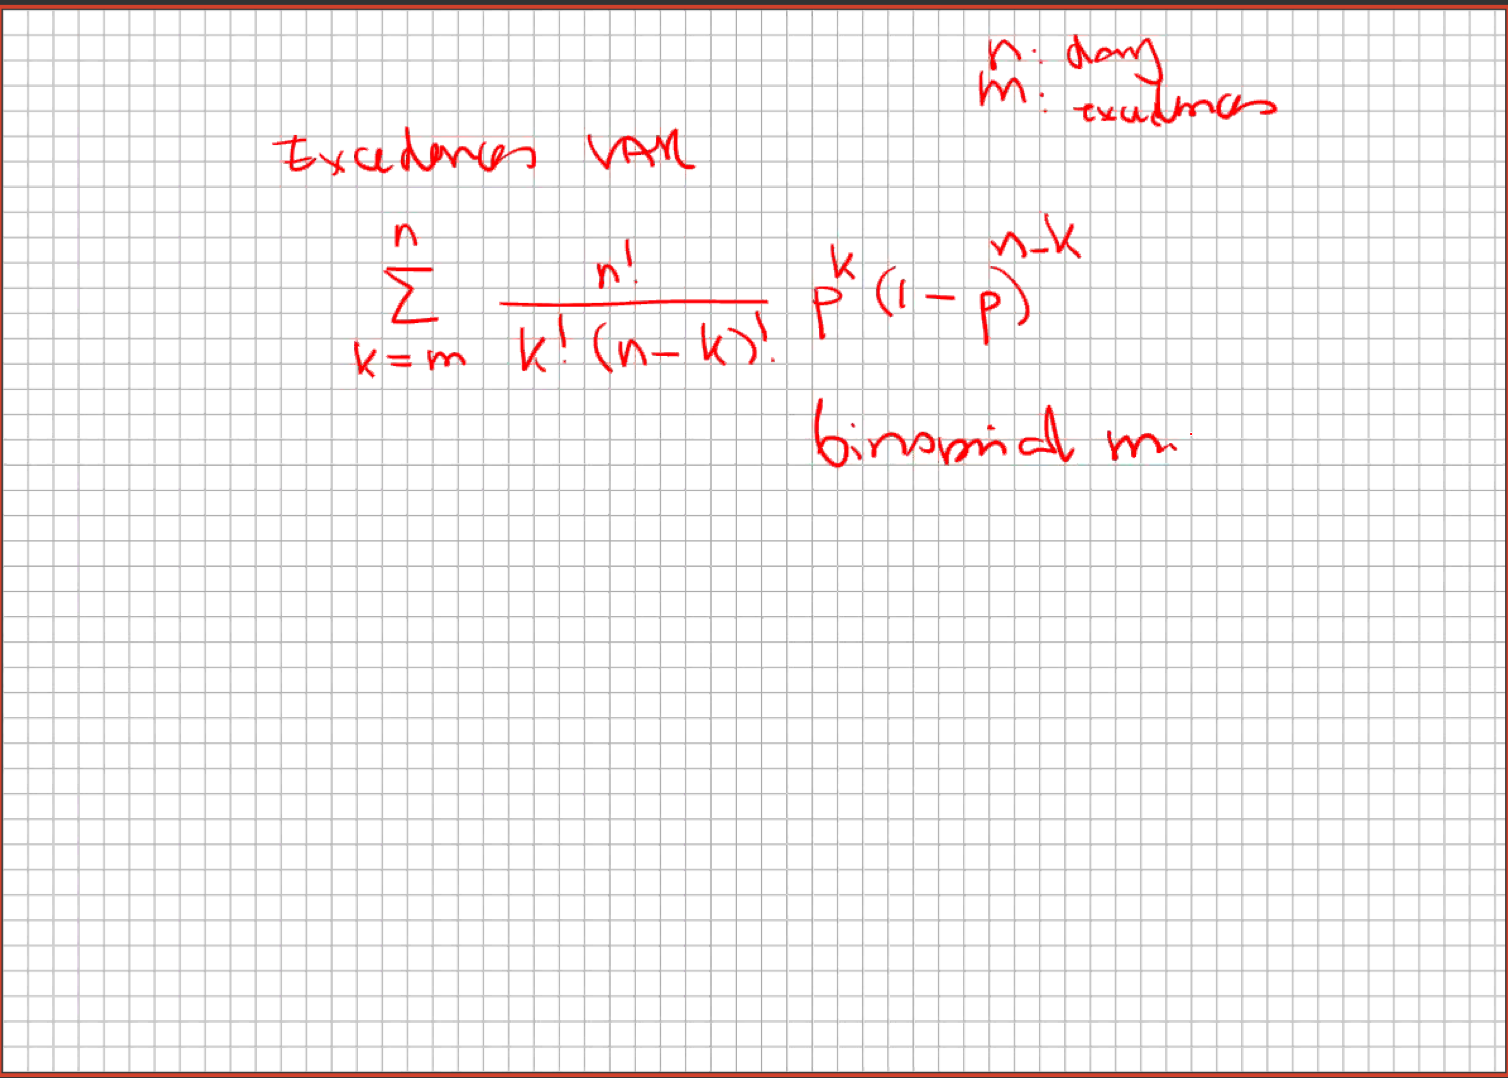 n: days
m: exceedences
Excedences VAR
n
∑ n! / k! (n-k)! p^k (1-p)^n-k
k=m
binomial m